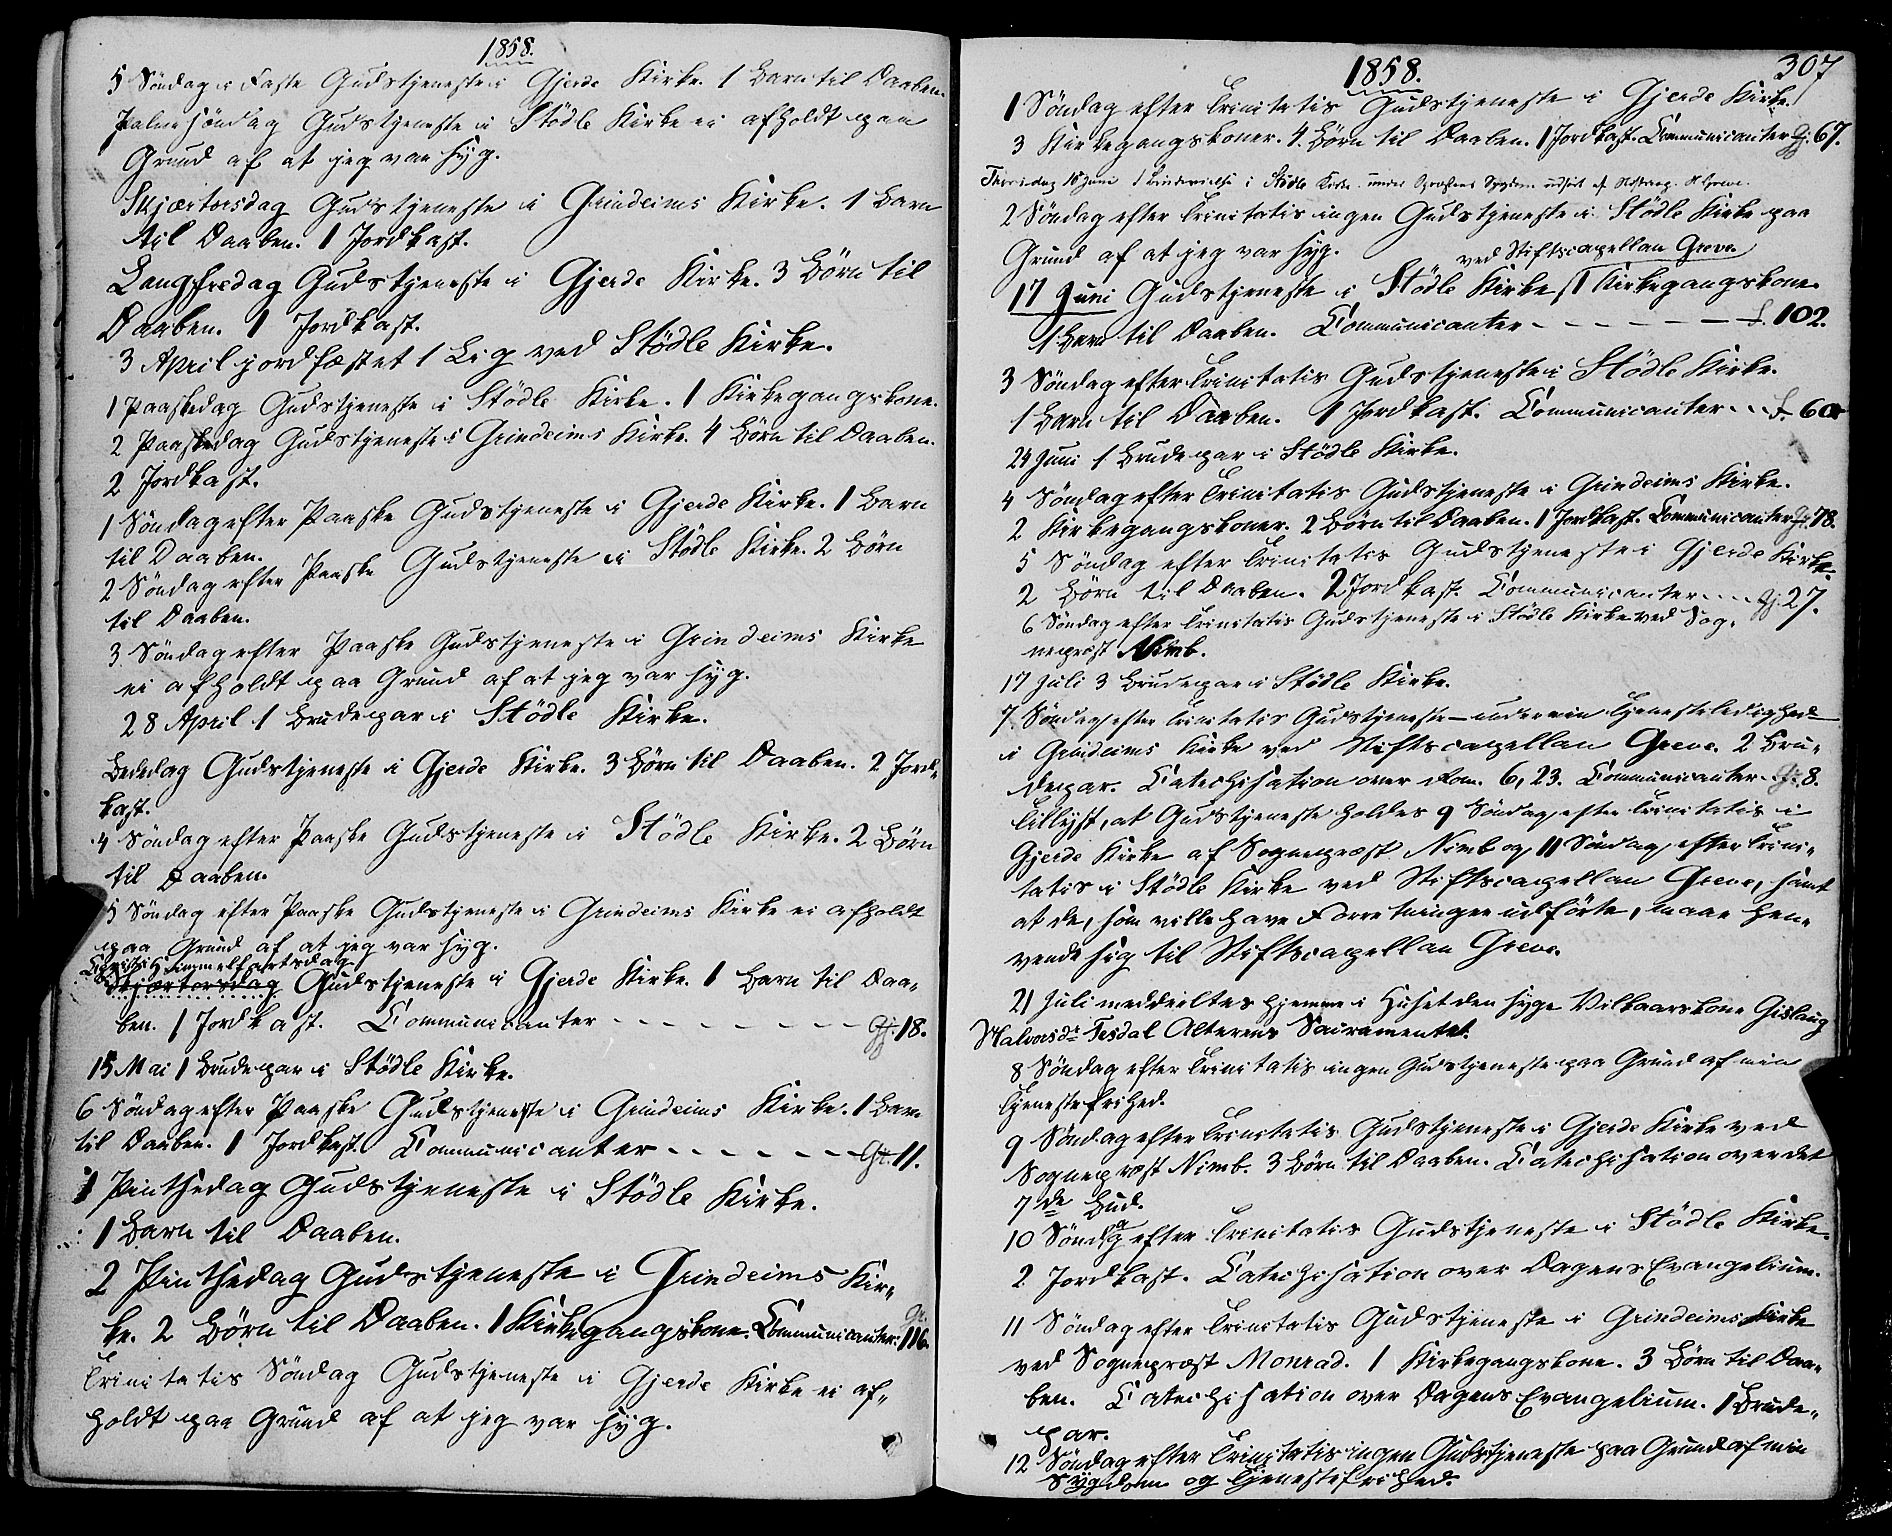 1858.
5 Søndag i Faste Gudstjeneste i Gjerde Kirke. 1 Barn til Daaben.
Palmesøndag Gudstjeneste i Stödle Kirke ei afholdt paa
Grund af at jeg var syg.
Skjærtorsdag Gudstjeneste i Grindeims Kirke. 1 Barn
til Daaben. 1 Jordkast.
Langfredag Gudstjeneste i Gjerde Kirke. 3 Børn til
Daaben. 1 Jordkast.
3 April jordfæstet 1 Lig ved Stödle Kirke.
1 Paaskedag Gudstjeneste i Stödle Kirke. 1 Kirkegangskone.
2 Paaskedag Gudstjeneste i Grindeims Kirke. 4 Børn til Daaben.
2 Jordkast.
1 Søndag efter Paaske Gudstjeneste i Gjerde Kirke. 1 Barn
til Daaben.
2 Søndag efter Paaske Gudstjeneste i Stödle Kirke. 2 Børn
til Daaben.
3 Søndag efter Paaske Gudstjeneste i Grindeims Kirke
ei afholdt paa Grund af at jeg var syg.
28 April 1 Brudepar i Stödle Kirke.
Bededag Gudstjeneste i Gjerde Kirke. 3 Børn til Daaben. 2 Jord-
kast.
4 Søndag efter Paaske Gudstjeneste i Stödle Kirke. 2 Børn
til Daaben.
5 Søndag efter Paaske Gudstjeneste i Grindeims Kirke ei afholdt
paa Grund af at jeg var syg.
Christi Himmelfartsdag
Skjærtorsdag Gudstjeneste i Gjerde Kirke. 1 Barn til Daa-
ben. 1 Jordkast. Communicanter - - - - - - - - Gj. 18.
15 Mai 1 Brudepar i Stödle Kirke.
6 Søndag efter Paaske Gudstjeneste i Grindeims Kirke. 1 Barn
til Daaben. 1 Jordkast. Communicanter - - - - - - - Gr. 11.
1 Pintsedag Gudstjeneste i Stödle Kirke.
1 Barn til Daaben.
2 Pintsedag Gudstjeneste i Grindeims Kir-
ke. 2 Børn til Daaben. 1 Kirkegangskone. Communicanter. Gr. 116.
Trinitatis Søndag Gudstjeneste i Gjerde Kirke ei af-
holdt paa Grund af at jeg var syg.
1858.
307
1 Søndag efter Trinitatis Gudstjeneste i Gjerde Kirke.
3 Kirkegangskoner. 4 Børn til Daaben. 1 Jordkast. Communicanter Gj. 67.
Thorsdag 10 Juni 1 i Stödle Kirke under Sygdom udført af Greve.
2 Søndag efter Trinitatis ingen Gudstjeneste i Stödle Kirke paa
Grund af at jeg var syg.
ved Stiftscapellan Greve
17 Juni Gudstjeneste i Stödle Kirke. 1 Kirkegangskone.
1 Barn til Daaben. Communicanter - - - - - - - - S. 102.
3 Søndag efter Trinitatis Gudstjeneste i Stödle Kirke.
1 Barn til Daaben. 1 Jordkast. Communicanter - - S. 60.
24 Juni 1 Brudepar i Stödle Kirke.
4 Søndag efter Trinitatis Gudstjeneste i Grindeims Kirke.
2 Kirkegangskoner. 2 Børn til Daaben. 1 Jordkast. Communicanter Gr. 78.
5 Søndag efter Trinitatis Gudstjeneste i Gjerde Kirke.
2 Børn til Daaben. 2 Jordkast. Communicanter - - - Gj. 27.
6 Søndag efter Trinitatis Gudstjeneste i Stödle Kirke ved Sog-
nepræst Nimb.
17 Juli 3 Brudepar i Stödle Kirke.
7 Søndag efter Trinitatis Gudstjeneste - under min Tjenesteledighed -
i Grindeims Kirke ved Stiftscapellan Greve. 2 Bru-
depar. Catechisation over Rom. 6, 23. Communicanter - Gr. 8.
Tillyst, at Gudstjeneste holdes 9 Søndag efter Trinitatis i
Gjerde Kirke af Sognepræst Nimb og 11 Søndag efter Trini-
tatis i Stödle Kirke ved Stiftscapellan Greve, samt
at de, som ville have Forretninger udførte, maae hen-
vende sig til Stiftscapellan Greve.
21 Juli meddeeltes hjemme i Huset den syge Vilkaarskone Gislaug
Halvorsdt. Tesdal Alterens Sacramentet.
8 Søndag efter Trinitatis ingen Gudstjeneste paa Grund af min
Tjenestefrihed.
9 Søndag efter Trinitatis Gudstjeneste i Gjerde Kirke ved
Sognepræst Nimb. 3 Børn til Daaben. Catechisation over det
7de Bud.
10 Søndag efter Trinitatis Gudstjeneste i Stödle Kirke.
2 Jordkast. Catechisation over Dagens Evangelium.
11 Søndag efter Trinitatis Gudstjeneste i Grindeims Kirke
ved Sognepræst Monrad. 1 Kirkegangskone. 3 Børn til Daa-
ben. Catechisation over Dagens Evangelium. 1 Brude-
par.
12 Søndag efter Trinitatis ingen Gudstjeneste paa Grund af min
Sygdom og Tjenestefrihed.